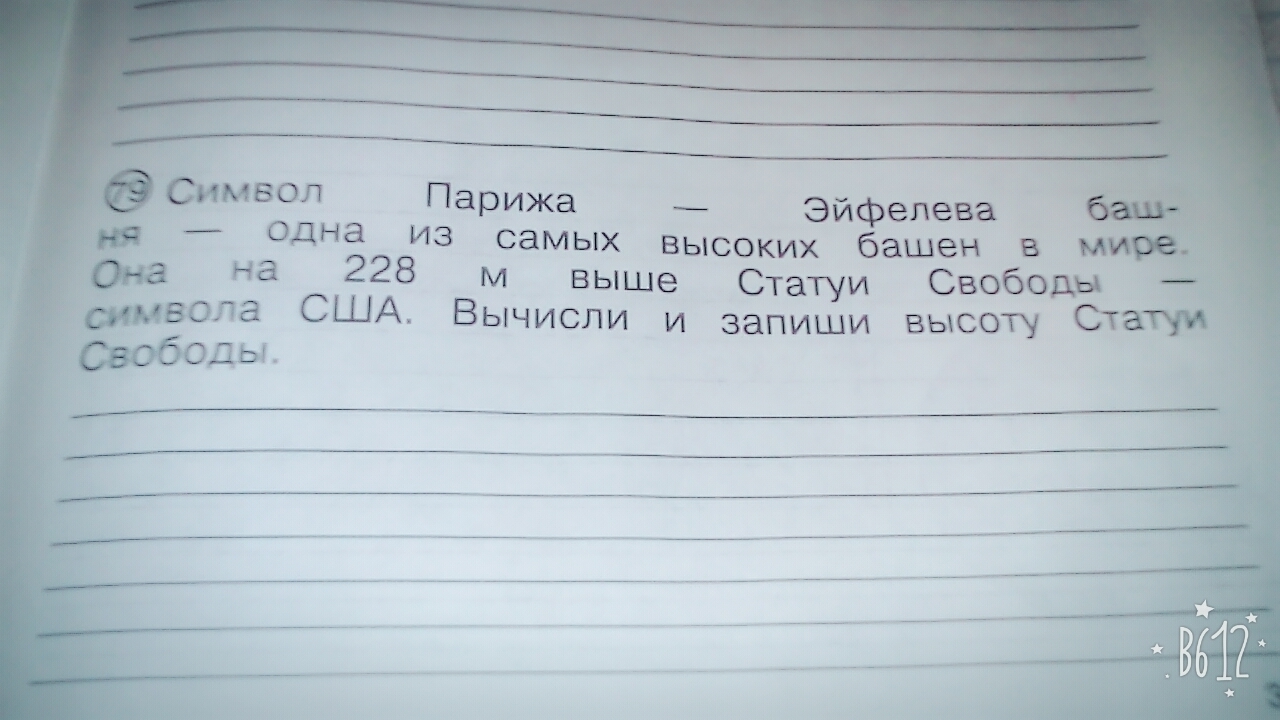 79 Символ Парижа — Эйфелева баш-
ня — одна из самых высоких башен в мире.
Она на 228 м выше Статуи Свободы —
символа США. Вычисли и запиши высоту Статуи
Свободы.
B612